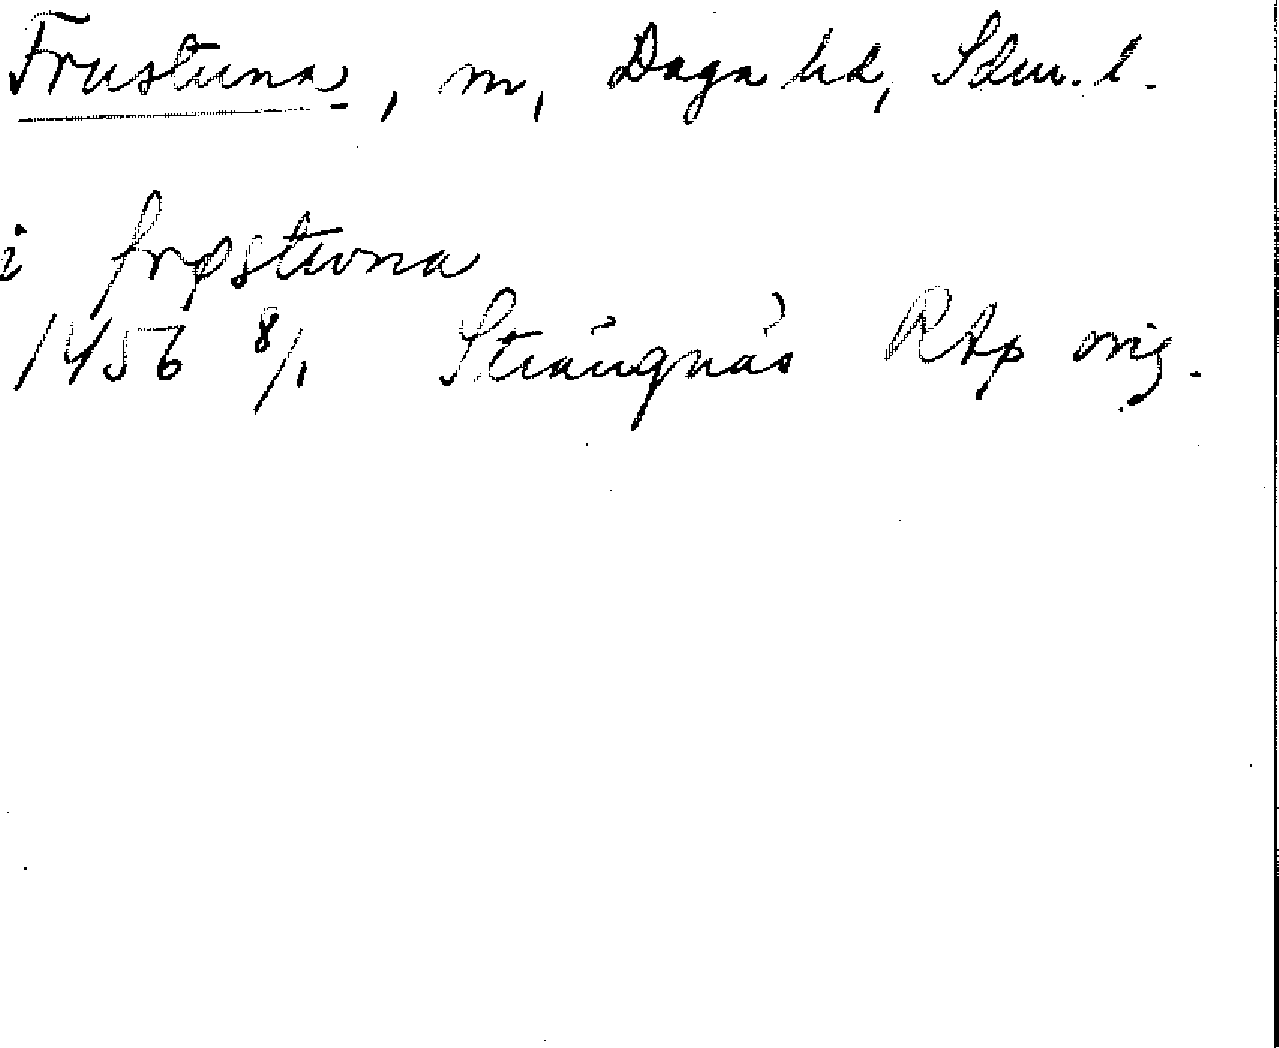 Frustuna, m, Daga hd, Sdm. l.
i frøstwna
1456 8/1 Strängnäs RAp orig.